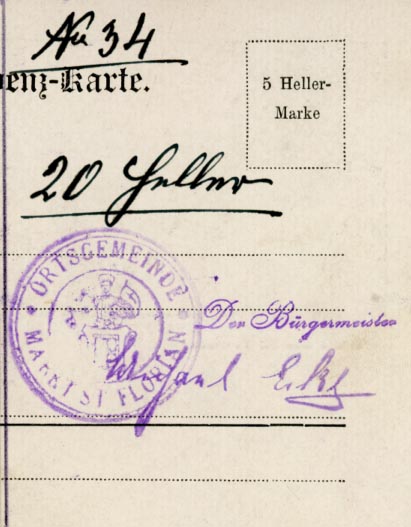 No 34
enz-Karte.
5 Heller-
Marke
20 Heller
ORTSGEMEINDE
MARKT ST FLORIAN
Der Bürgermeister